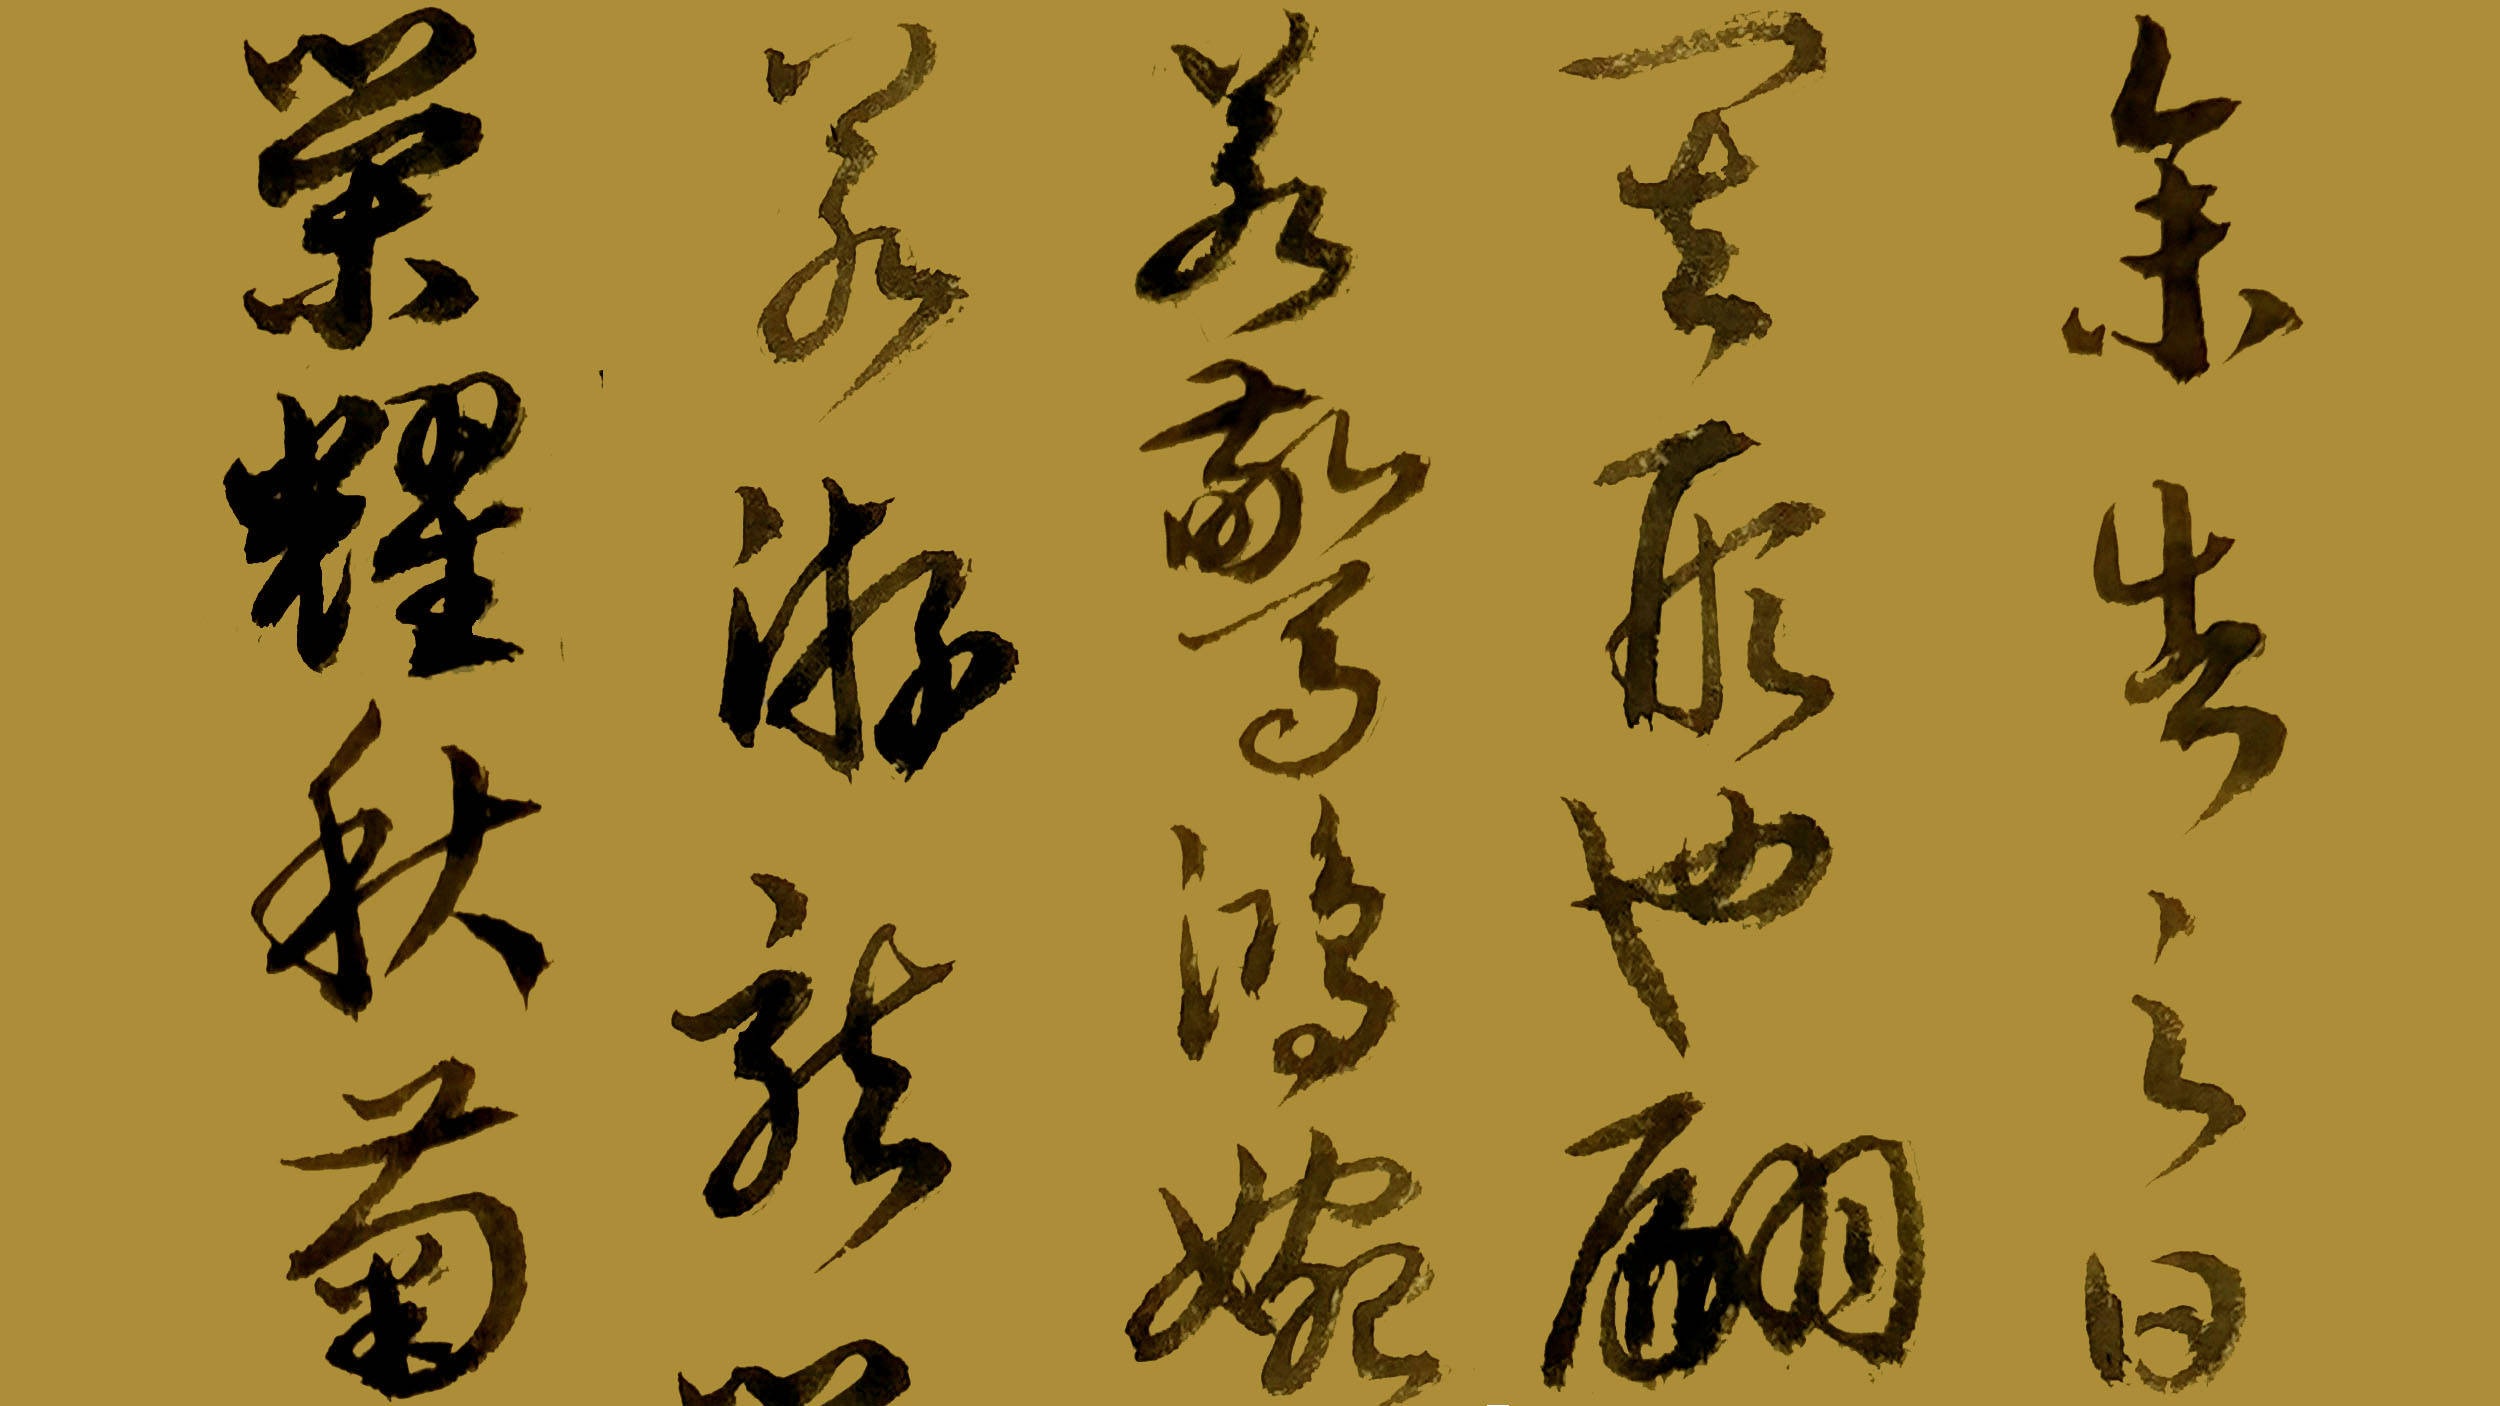 余告之曰
其形也翩
若驚鴻婉
若游龍
榮曜秋菊